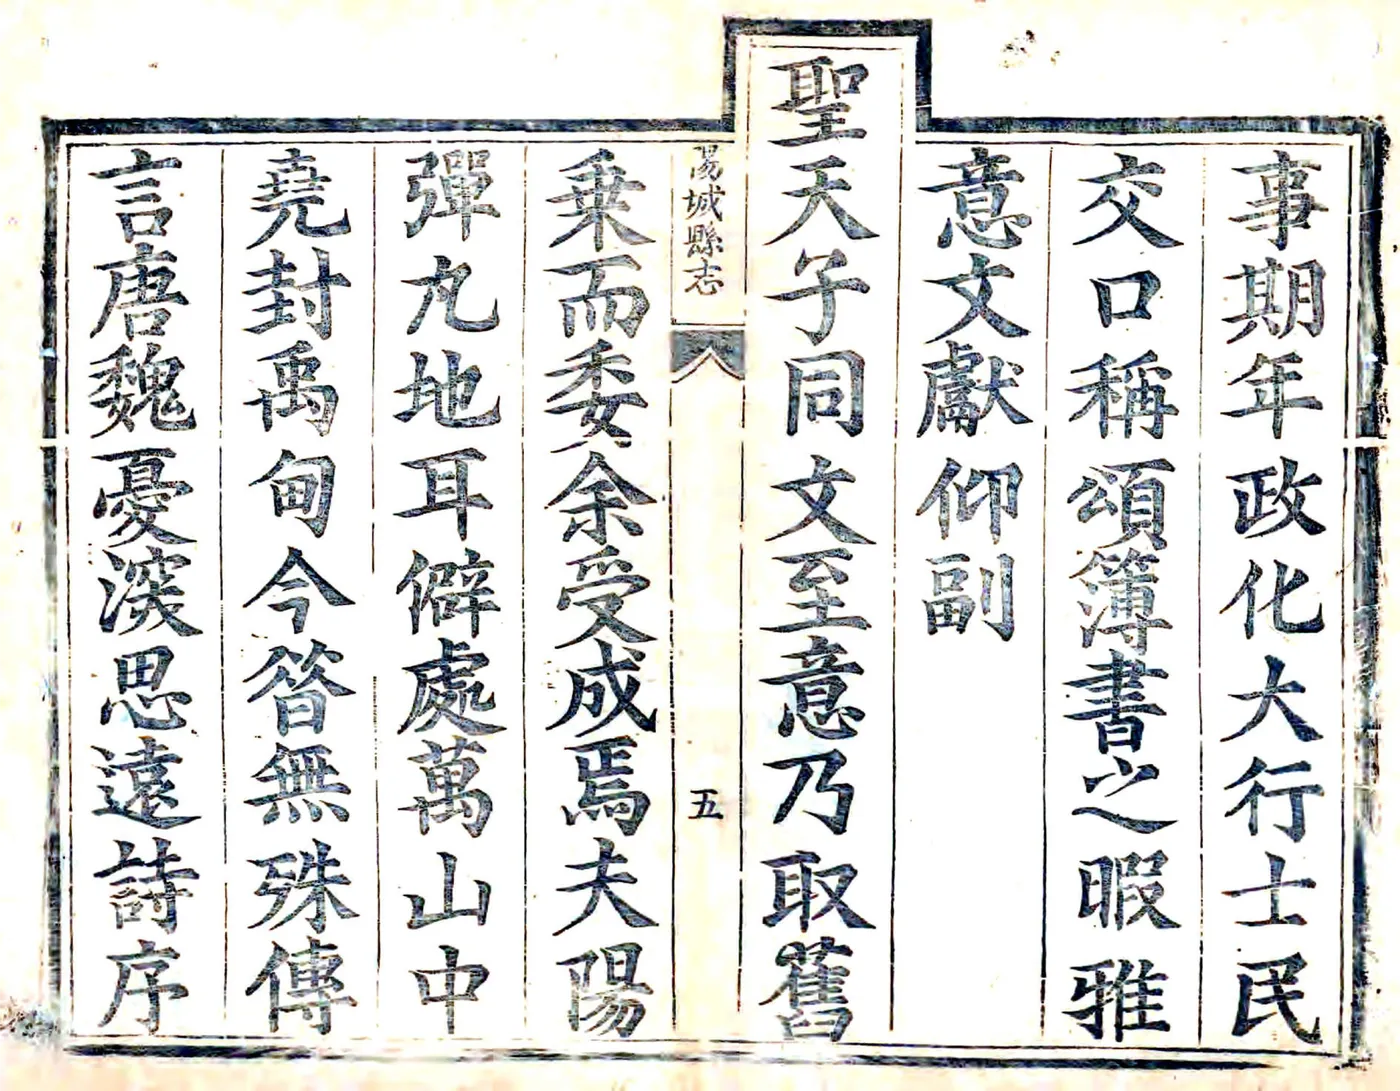 事期年政化大行士民
交口稱頌簿書之暇雅
意文獻仰副
聖天子同文至意乃取舊
陽城縣志
五
乗而委余受成焉夫陽
彈丸地耳僻處萬山中
堯封禹甸今昝無殊傳
言唐魏憂深思遠詩序